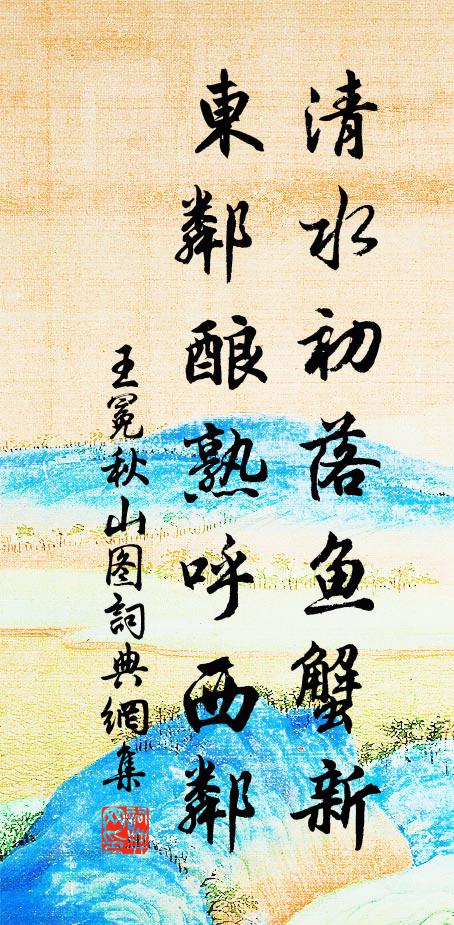 清水初落鱼蟹新
東鄰酿熟呼西鄰
王冕秋山图詞典網集